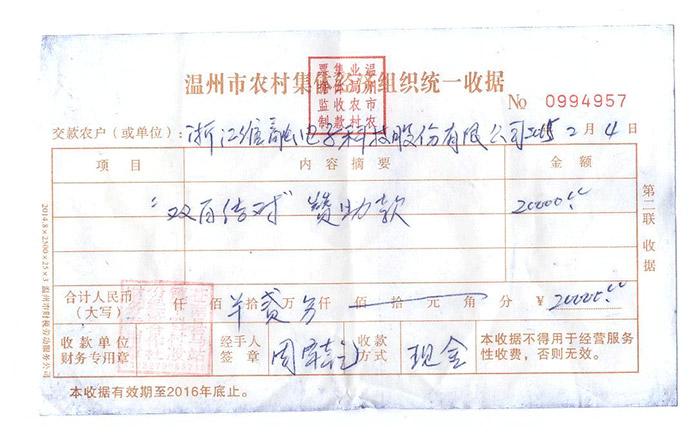 温州市农村集体经济组织统一收据
No 0994957
交款农户（或单位）：浙江维融电子科技股份有限公司 2015 2 月 4 日
项目 内容摘要 金额
赞助款 20000.00
合计人民币（大写） 仟 佰 拾 贰 万 仟 佰 拾 元 角 分 ¥ 20000.00
收款单位财务专用章 经手人签章 收款方式 现金 本收据不得用于经营服务性收费，否则无效。
本收据有效期至2016年底止。
第二联 收据
2014.8×2500×25×3 温州市财税劳动服务公司